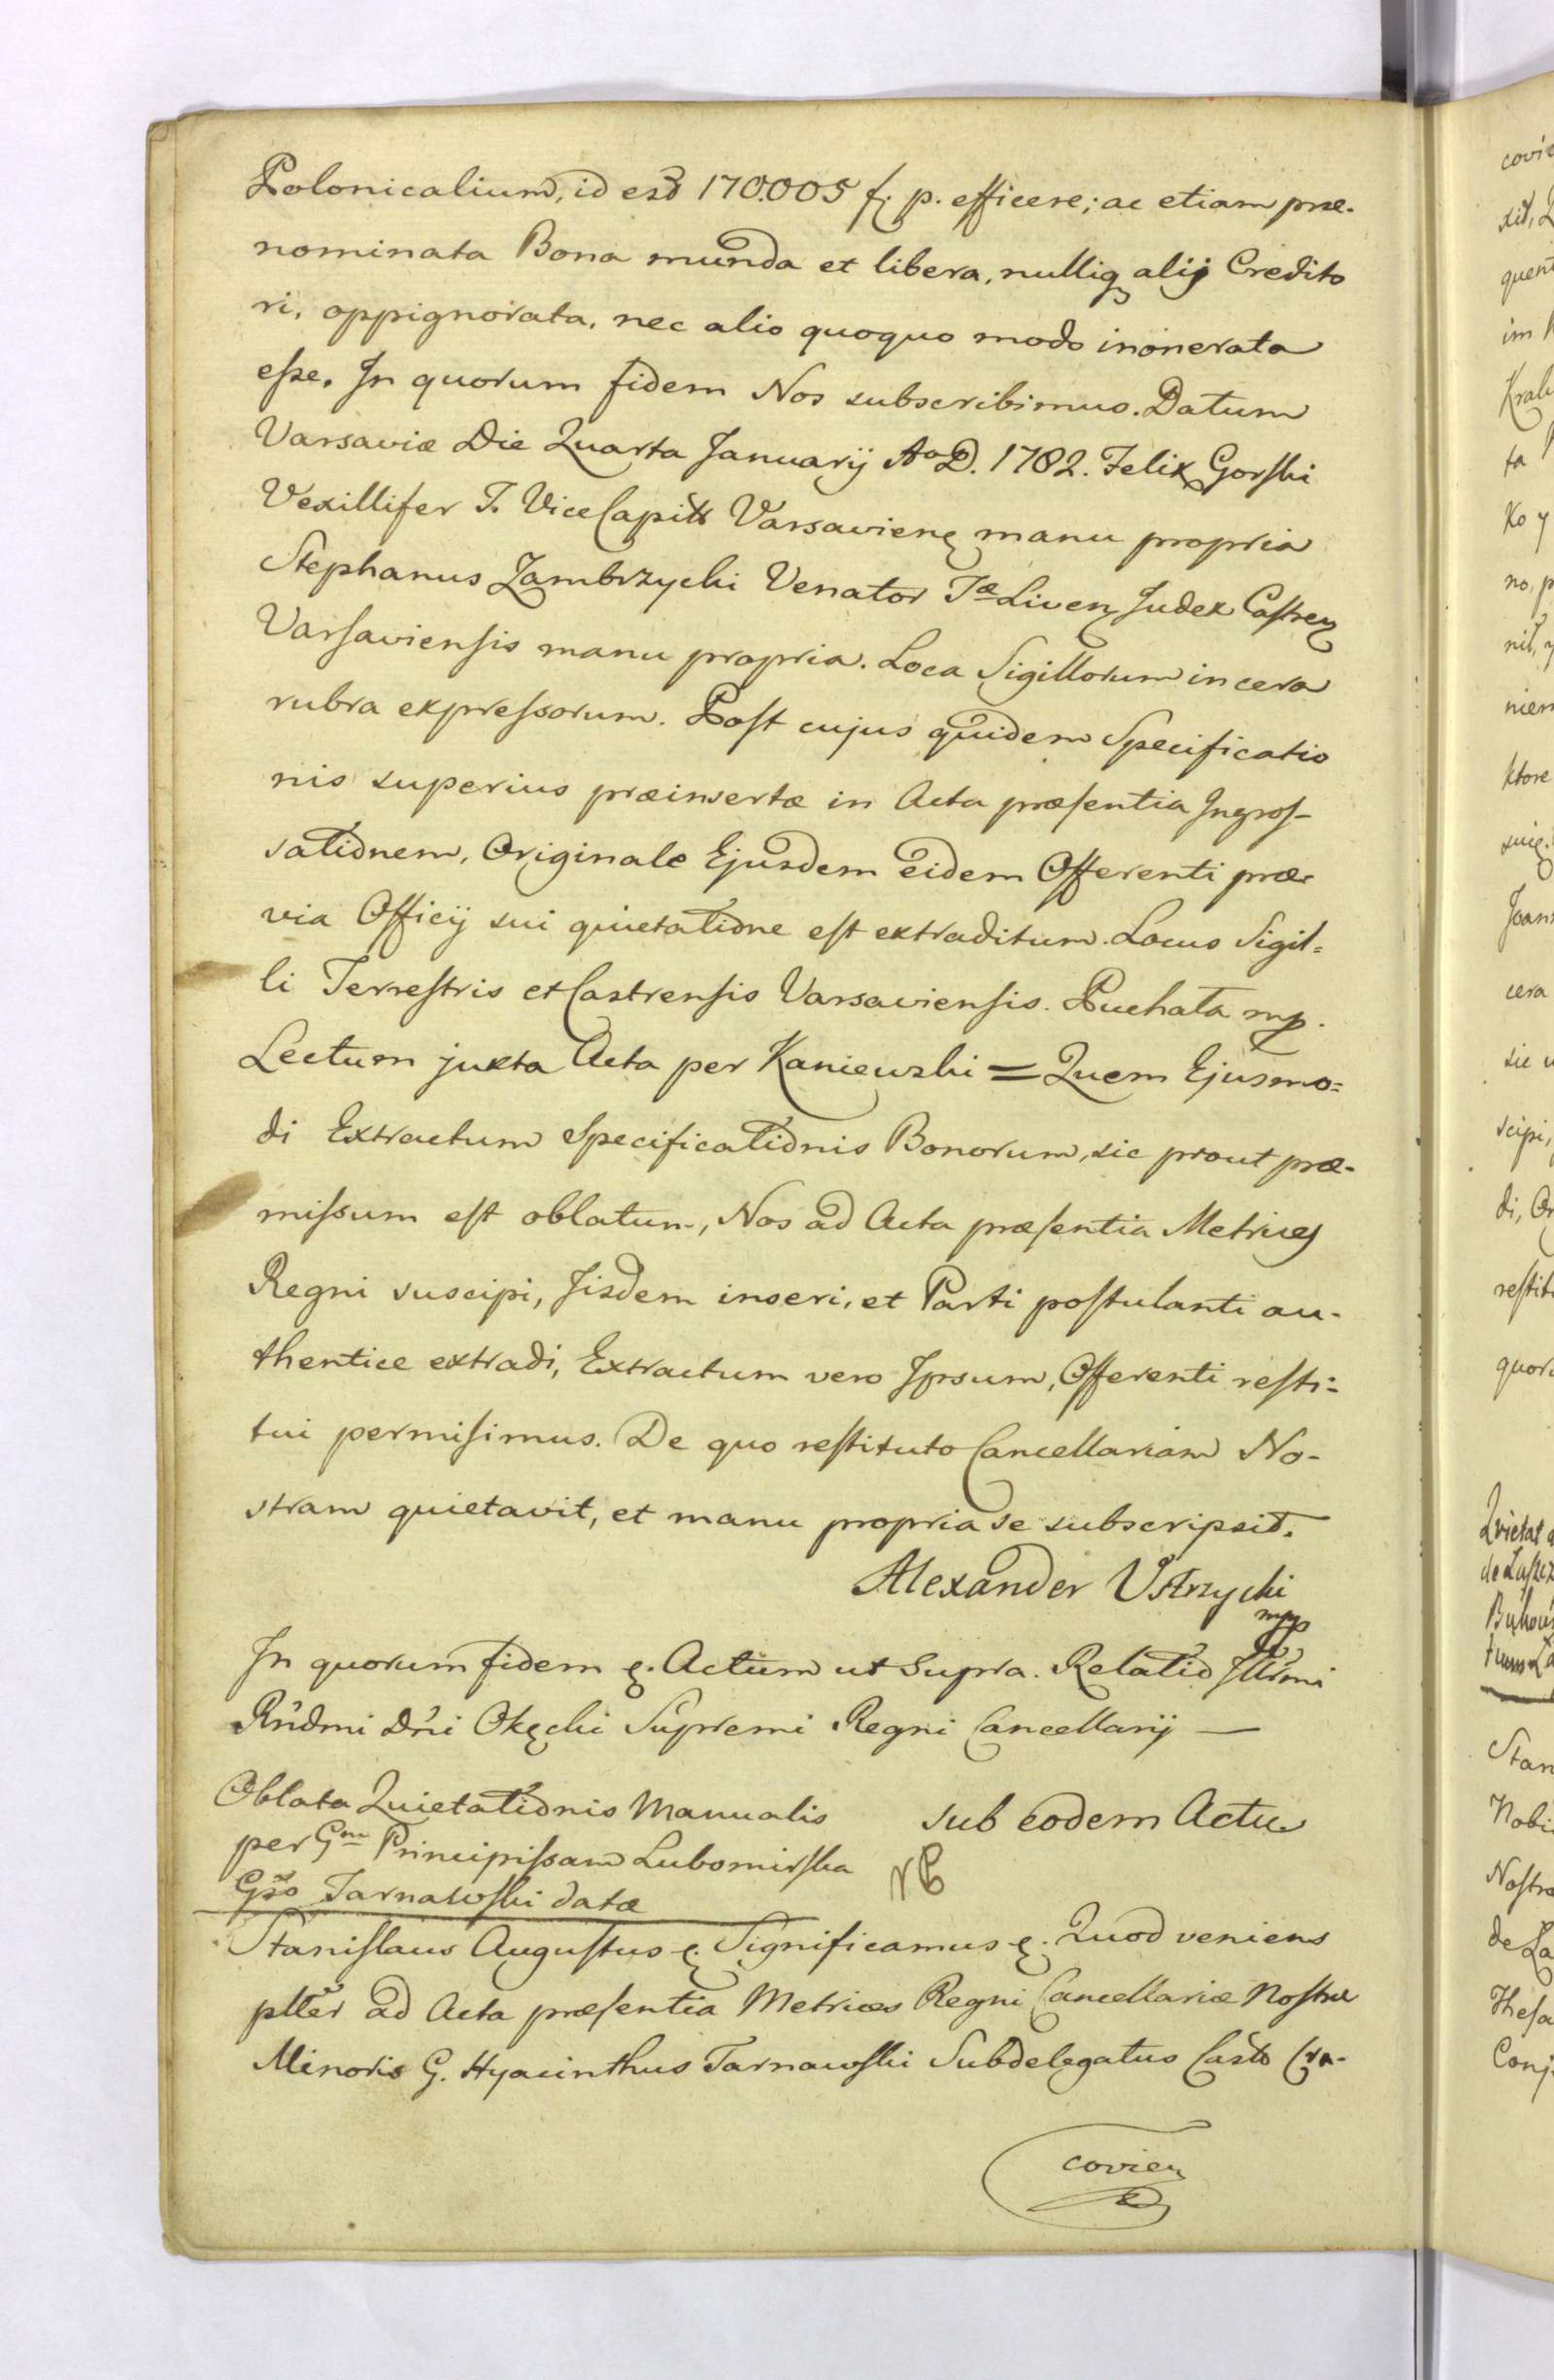 Polonicalium, id est 170.005 f. p. efficere; ac etiam præ-
nominata Bona munda et libera, nulliq alij Credito
ri, oppignorata, nec alio quoquo modo inonerata
esse. In quorum fidem Nos subscribimus. Datum
Varsaviæ Die Quarta Januarij Aº D. 1782. Felix Gorski
Vexillifer T. ViceCapits Varsavien manu propria
Stephanus Zambrzycki Venator Tæ Liven Judex Castren
Varsaviensis manu propria. Loca Sigillorum in cera
rubra expressorum. Post cujus quidem Specificatio
nis superius præinsertæ in Acta præsentia Ingros-
sationem, Originale Ejusdem eidem Offerenti præ-
via Officij sui quietatione est extraditum. Locus Sigil=
li Terrestris et Castrensis Varsaviensis. Puchała mp.
Lectum juxta Acta per Kaniewski = Quem Ejusmo=
di Extractum Specificationis Bonorum, sic prout præ-
missum est oblatum, Nos ad Acta præsentia Metrices
Regni suscipi, Iisdem inseri, et Parti postulanti au-
thentice extradi, Extractum vero Ipsum, Offerenti resti=
tui permisimus. De quo restituto Cancellariam No-
stram quietavit, et manu propria se subscripsit.
Alexander Ustrzycki
mpp
In quorum fidem &. Actum ut Supra. Relatio Illrmi
Rndmi Dni Okęcki Supremi Regni Cancellarij —
Oblata Quietationis Manualis
per Gm Principissam Lubomirska
Gso Tarnawski datæ
sub eodem Actu
NB
Stanislaus Augustus &. Significamus &. Quod veniens
pltèr ad Acta præsentia Metrices Regni Cancellariæ Nostræ
Minoris G. Hyacinthus Tarnawski Subdelegatus Casto Cra-
covien
covie
xit, Q
quent
im
Krak
ta
Ko y
no, p
nit, y
niem
ktore
Joan
cera
sic u
scipi,
di, Or
restit
quor
Quietat
de Łaszcz
Stan
Nobi
Nostræ
de Ła
Thesa
Conj